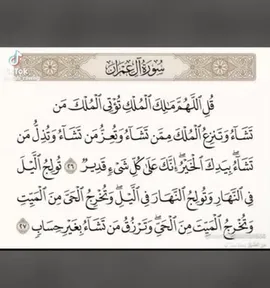 سُورَةُ آلِ عِمْرَانَ
قُلِ اللَّهُمَّ مَالِكَ الْمُلْكِ تُؤْتِي الْمُلْكَ مَن
تَشَاءُ وَتَنزِعُ الْمُلْكَ مِمَّن تَشَاءُ وَتُعِزُّ مَن تَشَاءُ وَتُذِلُّ مَن
تَشَاءُ ۖ بِيَدِكَ الْخَيْرُ ۖ إِنَّكَ عَلَىٰ كُلِّ شَيْءٍ قَدِيرٌ ٢٦ تُولِجُ اللَّيْلَ
فِي النَّهَارِ وَتُولِجُ النَّهَارَ فِي اللَّيْلِ ۖ وَتُخْرِجُ الْحَيَّ مِنَ الْمَيِّتِ
وَتُخْرِجُ الْمَيِّتَ مِنَ الْحَيِّ ۖ وَتَرْزُقُ مَن تَشَاءُ بِغَيْرِ حِسَابٍ ٢٧